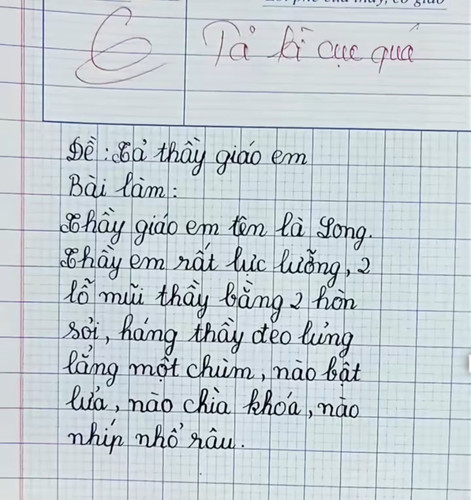 Lời phê của thầy, cô giáo
6
Tả kì cục quá
Đề : Tả thầy giáo em
Bài làm :
Thầy giáo em tên là Long.
Thầy em rất lực lưỡng, 2
lỗ mũi thầy bằng 2 hòn
sỏi, háng thầy đeo lủng
lẳng một chùm, nào bật
lửa, nào chìa khoá, nào
nhíp nhổ râu.